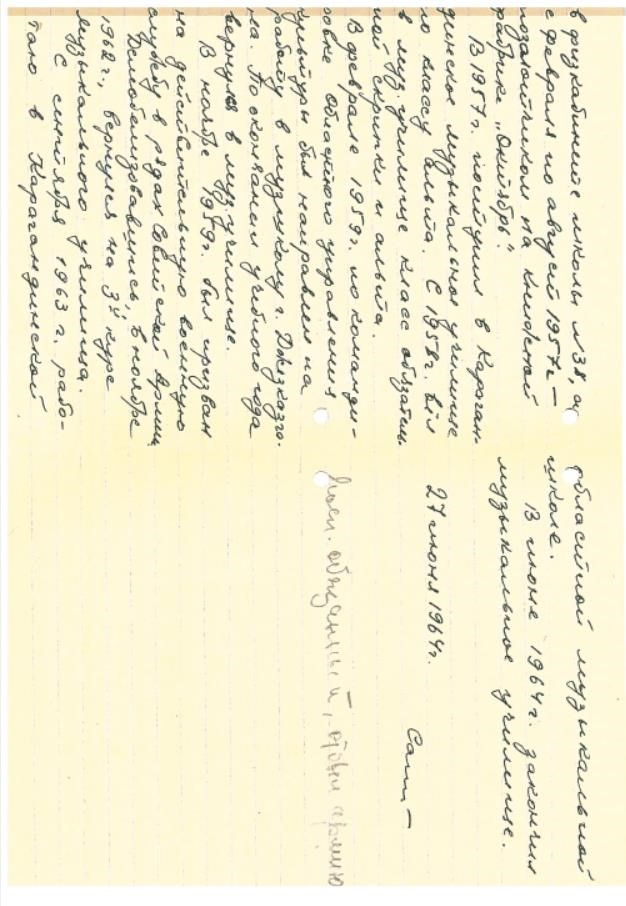 в физкабинете школы №38, а
с февраля по август 1957г. –
позолотчиком на книжной
фабрике „Октябрь".
В 1957г. поступил в Караган-
динское музыкальное училище
по классу альта. С 1958г. вёл
в муз. училище класс обязатель.
ной скрипки и альта.
В феврале 1959г. по команди-
ровке Областного управления
культуры был направлен на
работу в музшколу г. Джезказга-
на. По окончании учебного года
вернулся в муз. училище.
В ноябре 1959г. был призван
на действительную военную
службу в рядах Советской Армии.
Демобилизовавшись, в ноябре
1962г., вернулся на 3й курс
музыкального училища.
С сентября 1963 г. рабо-
таю в Карагандинской
областной музыкальной
школе.
В июне 1964г. закончил
музыкальное училище.
27 июня 1964г.
Воен. обязанный, армию